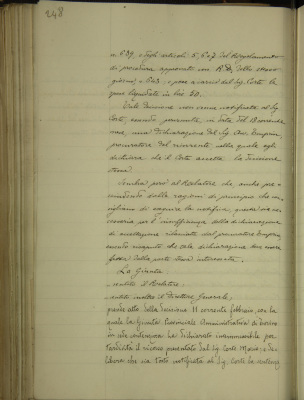 248
n. 639, e degli articoli 5, 6 e 7 del Regolamento
di procedura approvato con R.D. dello stesso
giorno, n. 643, e pone a carico del Sig. Corti le
spese liquidate in lire 50.
Tale decisione non venne notificata al Sig.
Corti, essendo pervenuta, in data del 18 corrente
mese, una dichiarazione del Sig. Avv.
procuratore del ricorrente nella quale egli
dichiara che il Corti accetta la decisione
stessa.
Sembra però al Relatore che, anche
dalla ragioni di principio che
di eseguire la notifica, questa sia
necessaria per l'insufficienza della dichiarazione
di accettazione rilasciata dal procuratore
che tale dichiarazione deve essere
fatta dalla parte stessa interessata.
La Giunta
sentito il Relatore,
sentito inoltre il Direttore Generale,
preso atto della decisione 11 corrente febbraio, con la
quale la Giunta Provinciale Amministrativa di
in sede contenziosa ha dichiarato inammissibile per
tardività il ricorso presentato dal Sig. Corti Mario,
delibera che sia tosto notificata al Sig. Corti la